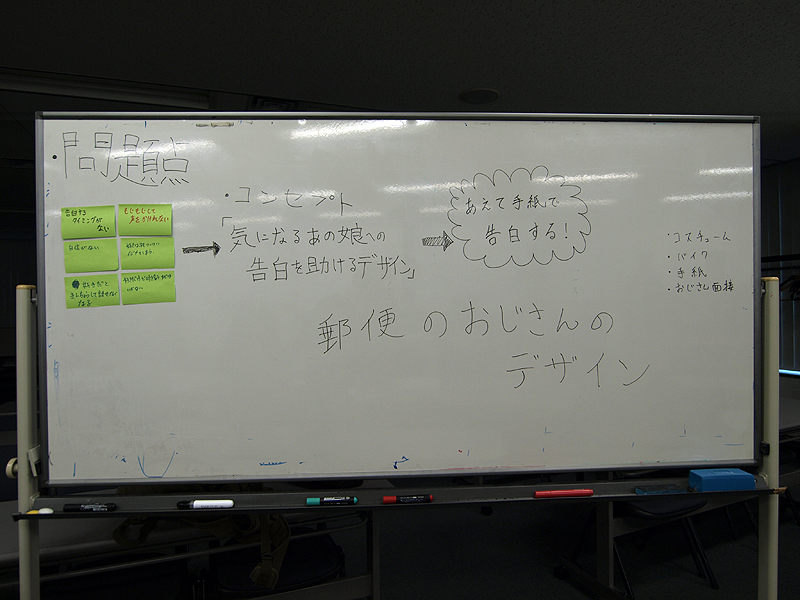 問題点
告白する
タイミングが
ない
もじもじして
声をかけれない
自信がない
好きだと
きんちょうして話せなく
なる
・コンセプト
「気になるあの娘への
告白を助けるデザイン」
あえて手紙で
告白する!
郵便のおじさんの
デザイン
・コスチューム
・バイク
・手紙
・おじさん面接